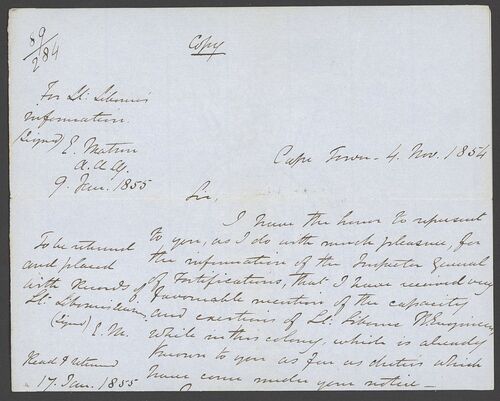 89
284
Copy
For Lt. Siborne's
information.
(Signed) E. Matson
A.A.G.
9. Jan. 1855
Cape Town - 4. Nov. 1854
Sir,
I have the honor to represent
to you, as I do with much pleasure, for
the information of the Inspector General
of Fortifications, that I have received very
favourable mention of the capacity
and exertions of Lt. Siborne R. Engineers
while in this colony, which is already
known to you as far as duties which
have come under your notice -
To be returned
and placed
with Records of
Lt. Siborne's
(Signed) E. M.
Read & returned
17. Jan. 1855